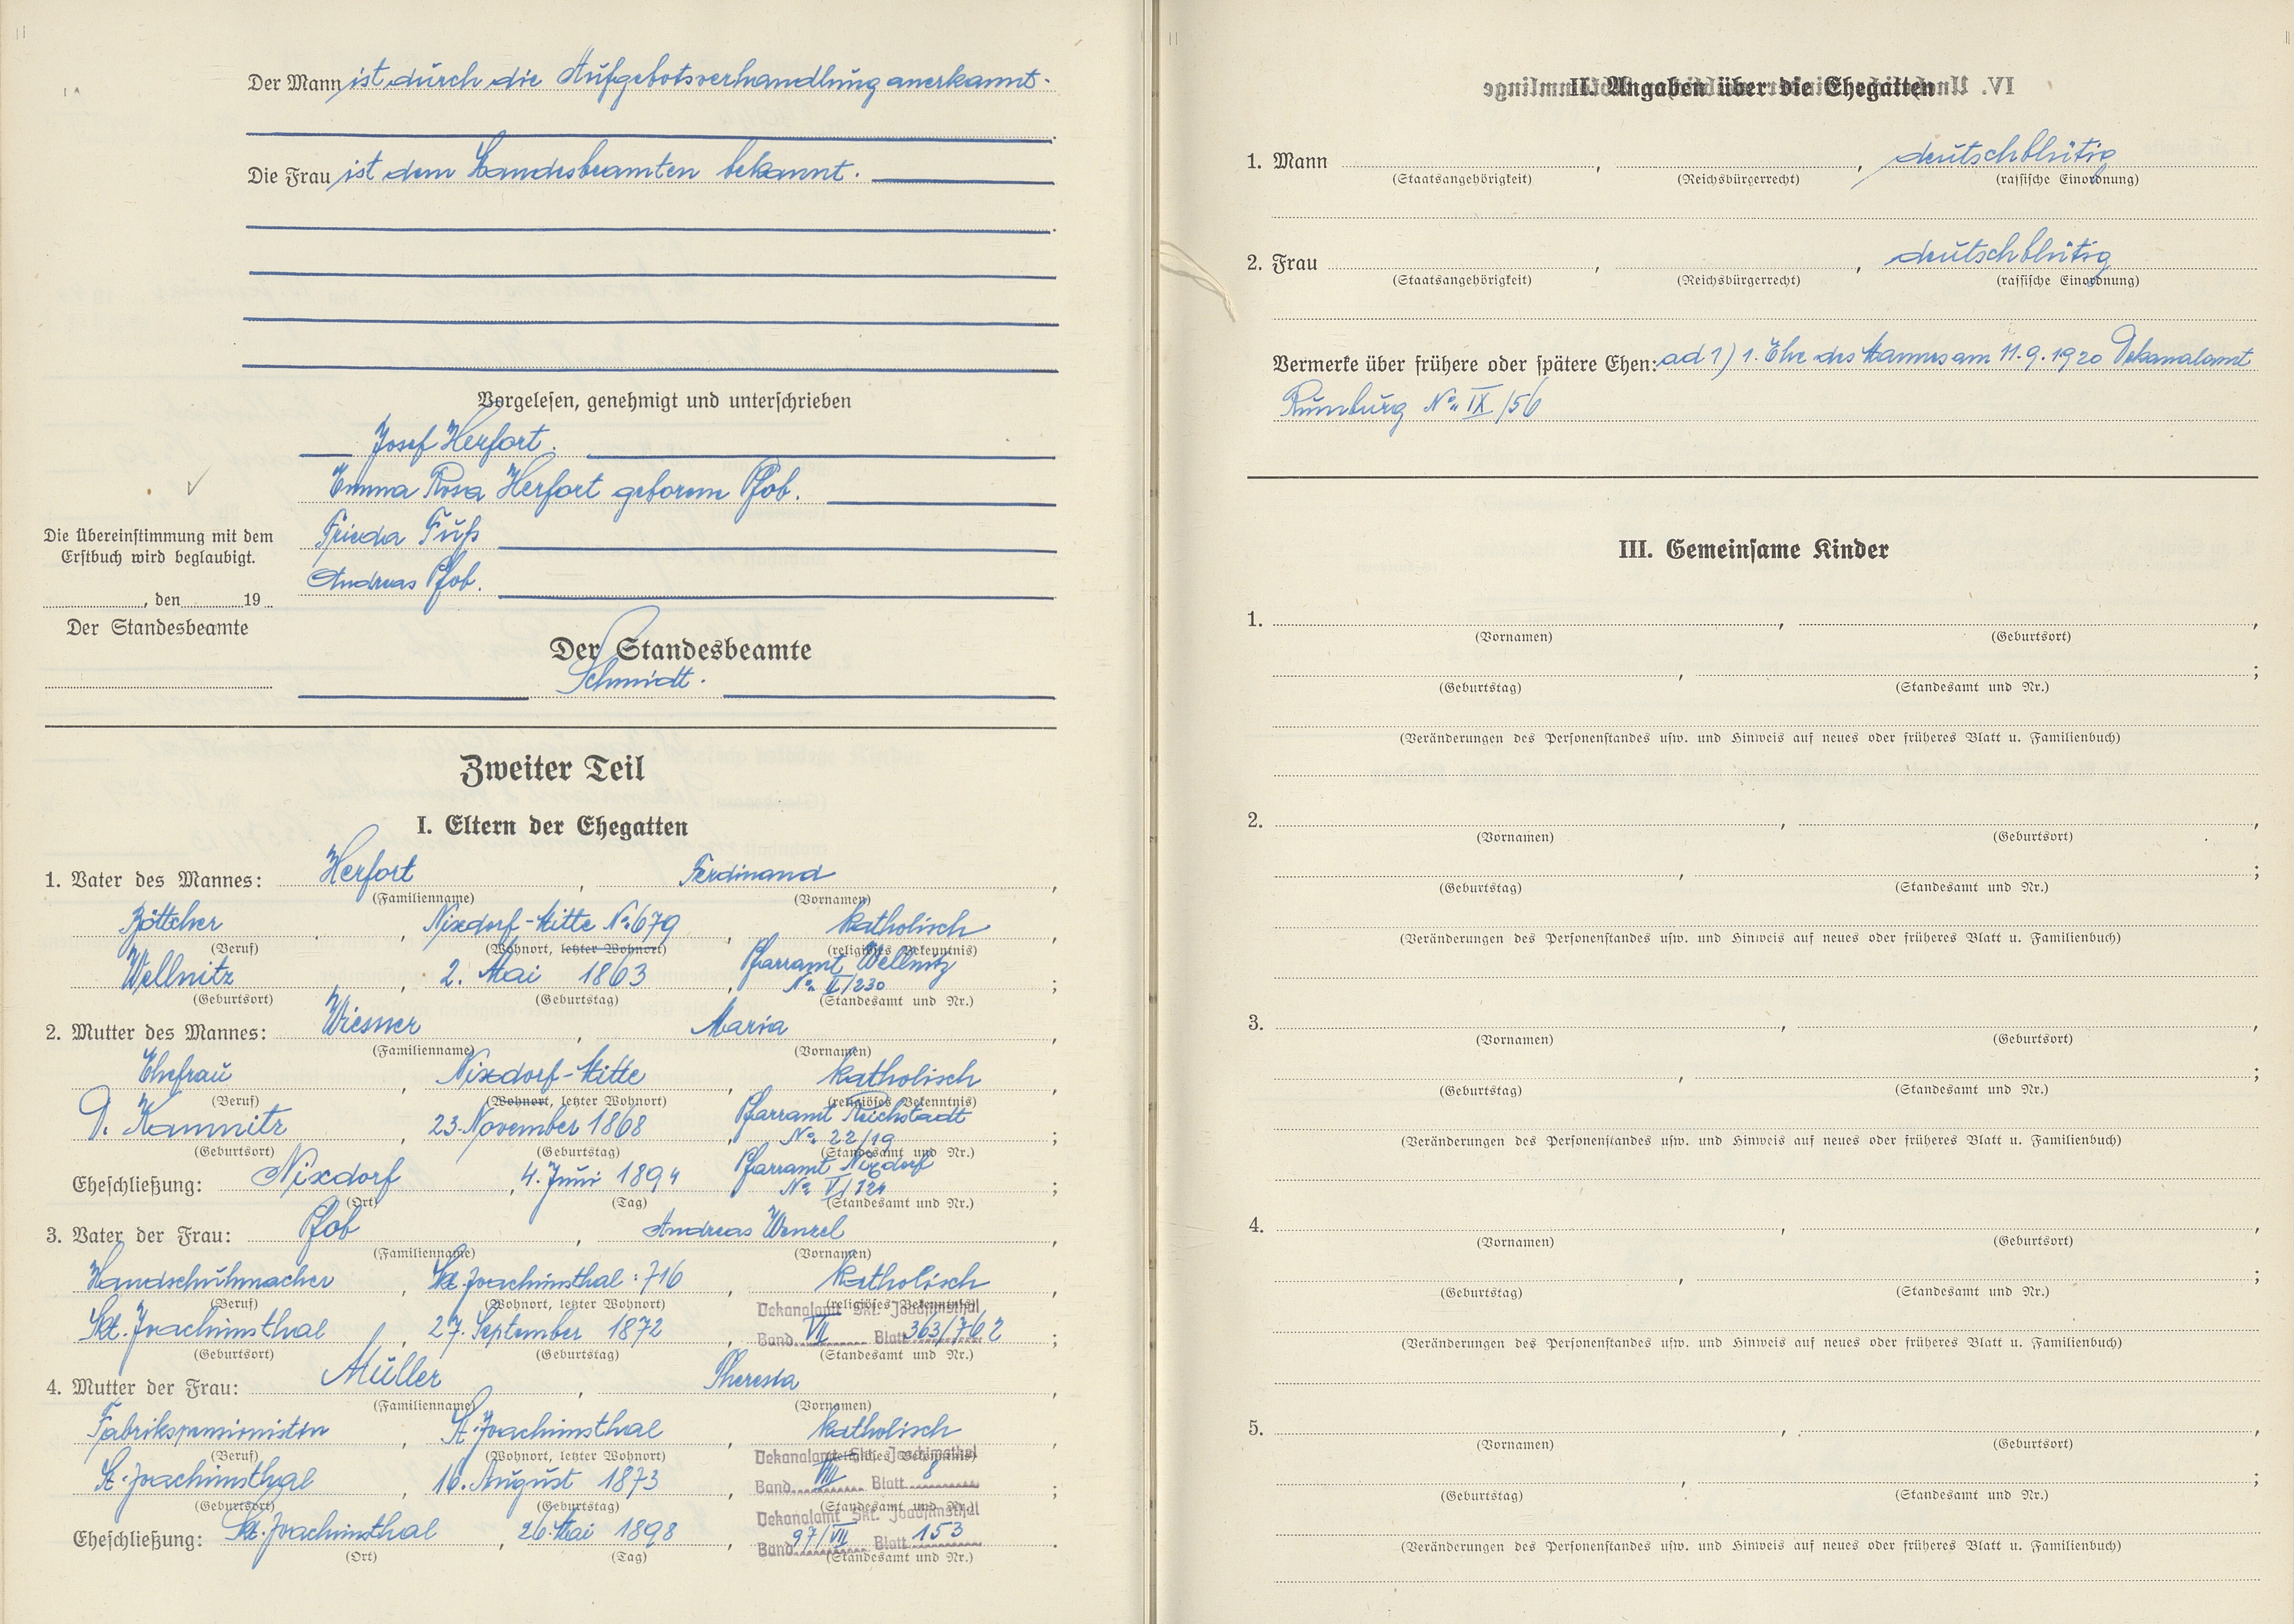 Der Mann ist durch die Aufgebotsverhandlung anerkannt.
Die Frau ist dem Standesbeamten bekannt.
Vorgelesen, genehmigt und unterschrieben
Josef Herfort.
Emma Rosa Herfort geborene Pfob.
Frieda Fuß
Andreas Pfob.
Die Übereinstimmung mit dem
Erstbuch wird beglaubigt.
, den 19
Der Standesbeamte
Der Standesbeamte
Schmidt.
Zweiter Teil
I. Eltern der Ehegatten
1. Vater des Mannes: Herfort, Ferdinand,
(Familienname) (Vornamen)
Böttcher, Nixdorf-Mitte No 679, katholisch,
(Beruf) (Wohnort, letzter Wohnort) (religiöses Bekenntnis)
Wellnitz, 2. Mai 1863, Pfarramt Wellnitz
No II/230;
(Geburtsort) (Geburtstag) (Standesamt und Nr.)
2. Mutter des Mannes: Wiesner, Maria,
(Familienname) (Vornamen)
Ehefrau, Nixdorf-Mitte, katholisch,
(Beruf) (Wohnort, letzter Wohnort) (religiöses Bekenntnis)
D. Kamnitz, 23. November 1868, Pfarramt Reichstadt
No 22/19;
(Geburtsort) (Geburtstag) (Standesamt und Nr.)
Eheschließung: Nixdorf, 4. Juni 1894 Pfarramt Nixdorf
No VI/124;
(Ort) (Tag) (Standesamt und Nr.)
3. Vater der Frau: Pfob, Andreas Wenzel,
(Familienname) (Vornamen)
Handschuhmacher, Skt. Joachimsthal: 716, katholisch,
(Beruf) (Wohnort, letzter Wohnort) (religiöses Bekenntnis)
Dekanalamt Skt. Joachimsthal
Skt. Joachimsthal, 27. September 1872, Band VII Blatt 363/762;
(Geburtsort) (Geburtstag) (Standesamt und Nr.)
4. Mutter der Frau: Müller, Theresia,
(Familienname) (Vornamen)
Fabrikspensionistin, St. Joachimsthal, katholisch,
(Beruf) (Wohnort, letzter Wohnort) (religiöses Bekenntnis)
Dekanalamt Skt. Joachimsthal
St. Joachimsthal, 16. August 1873, Band VIII Blatt 8;
(Geburtsort) (Geburtstag) (Standesamt und Nr.)
Dekanalamt Skt. Joachimsthal
Eheschließung: Skt. Joachimsthal, 26. Mai 1898, Band 97/VII Blatt 153.
(Ort) (Tag) (Standesamt und Nr.)
II. Angaben über die Ehegatten
1. Mann , , deutschblütig
(Staatsangehörigkeit) (Reichsbürgerrecht) (rassische Einordnung)
2. Frau , , deutschblütig
(Staatsangehörigkeit) (Reichsbürgerrecht) (rassische Einordnung)
Vermerke über frühere oder spätere Ehen: ad 1) 1. Ehe des Mannes am 11.9.1920 Dekanalamt
Rumburg No IX/56
III. Gemeinsame Kinder
1. , ,
(Vornamen) (Geburtsort)
, ;
(Geburtstag) (Standesamt und Nr.)
(Veränderungen des Personenstandes usw. und Hinweis auf neues oder früheres Blatt u. Familienbuch)
2. , ,
(Vornamen) (Geburtsort)
, ;
(Geburtstag) (Standesamt und Nr.)
(Veränderungen des Personenstandes usw. und Hinweis auf neues oder früheres Blatt u. Familienbuch)
3. , ,
(Vornamen) (Geburtsort)
, ;
(Geburtstag) (Standesamt und Nr.)
(Veränderungen des Personenstandes usw. und Hinweis auf neues oder früheres Blatt u. Familienbuch)
4. , ,
(Vornamen) (Geburtsort)
, ;
(Geburtstag) (Standesamt und Nr.)
(Veränderungen des Personenstandes usw. und Hinweis auf neues oder früheres Blatt u. Familienbuch)
5. , ,
(Vornamen) (Geburtsort)
, ;
(Geburtstag) (Standesamt und Nr.)
(Veränderungen des Personenstandes usw. und Hinweis auf neues oder früheres Blatt u. Familienbuch)